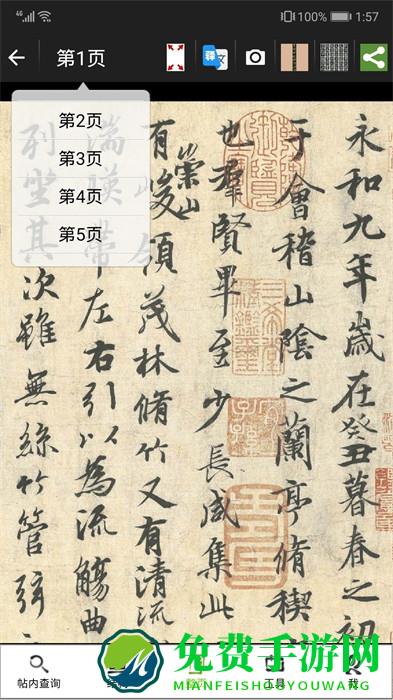 4G 100% 1:57
第1页
第2页
第3页
第4页
第5页
永和九年歲在癸丑暮春之初
于會稽山陰之蘭亭脩禊
也羣賢畢至少長咸集此
有崇山峻領茂林脩竹又有清流
湍暎帶左右引以為流觴曲
列坐其次雖無絲竹管弦
帖内查询
工具
载
免费手游网
MIANFEISHOUYOUWANG